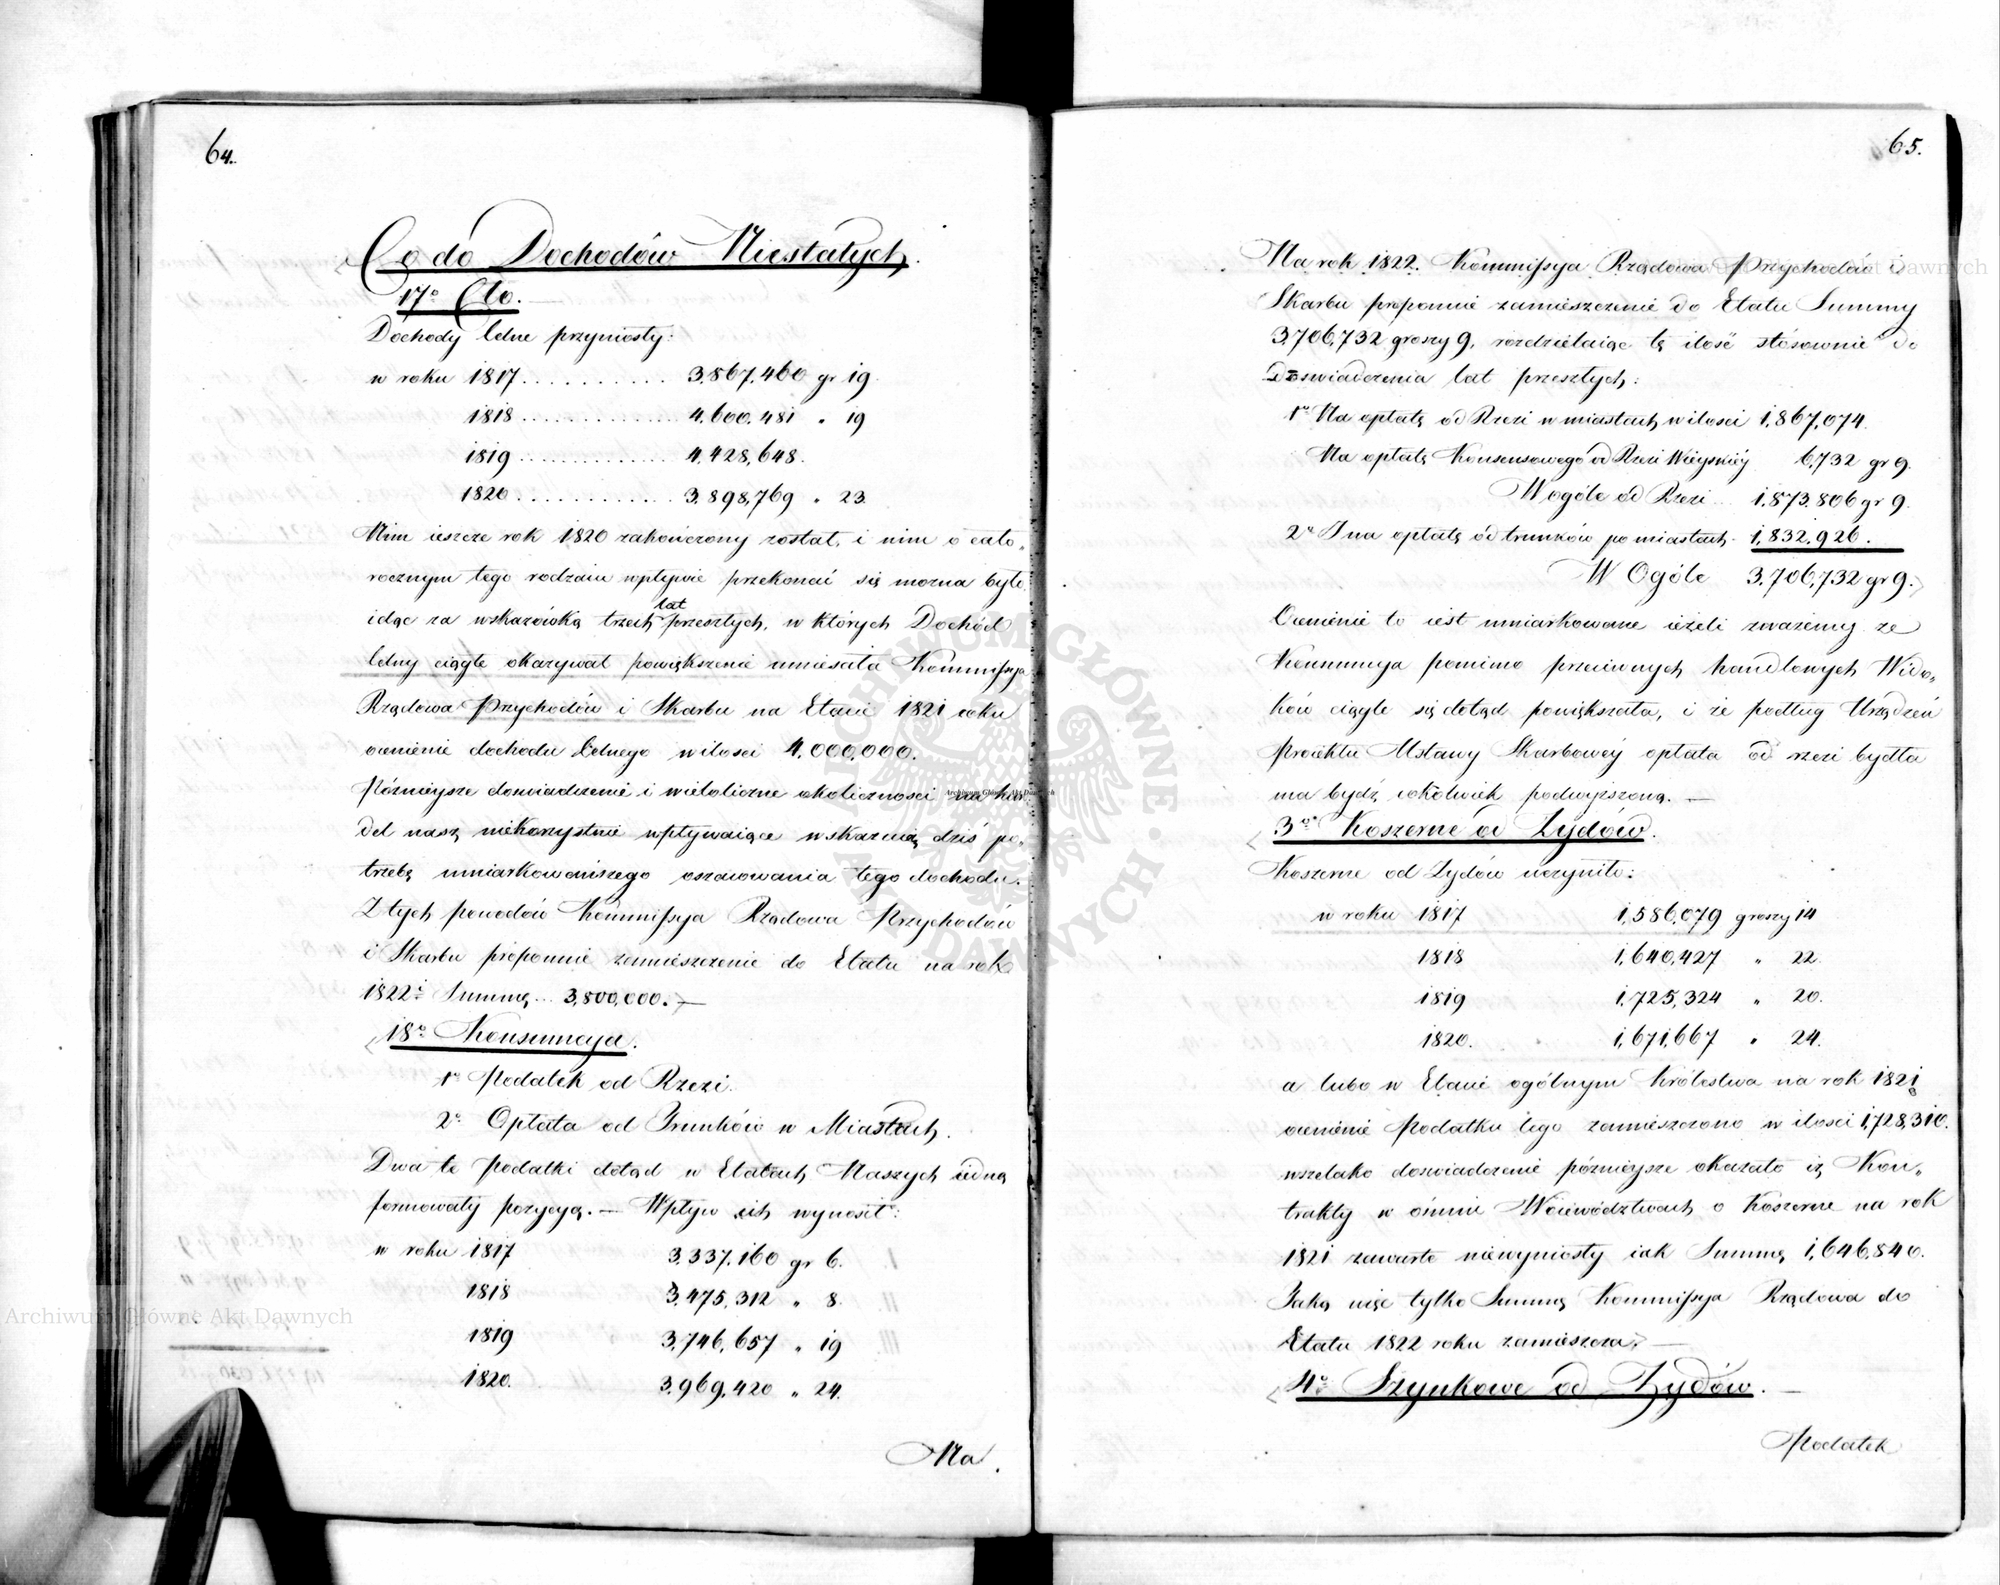 64.
Co do Dochodów Niestałych.
17o Cło.
Dochody Celne przyniosły:
w roku 1817........... 3,867,460 gr 19.
1818.............. 4,600,481 „ 19
1819............. 4,428,648.
1820............. 3,898,769 „ 23.
Nim ieszcze rok 1820 zakończony został, i nim o cało„
rocznym tego rodzaiu wpływie przekonać się można było
idąc za wskazówką trzech lat przeszłych, w których Dochód
Celny ciągle okazywał powiększenie umieściła Kommissya
Rządowa Przychodów i Skarbu na Etacie 1821 roku
ocenienie dochodu Celnego w ilości 4,000,000.
Późnieysze doswiadczenie i wieloliczne okoliczności na han„
del nasz niekorzystnie wpływaiące wskazuią dziś po„
trzebę umiarkowańszego oszacowania tego dochodu.
Z tych powodów Kommissya Rządowa Przychodów
i Skarbu proponuie zamieszczenie do Etatu na rok
1822i Summę... 3,800,000. —
18o Konsumcya.
1o Podatek od Rzezi.
2o Opłata od Trunków w Miastach.
Dwa te Podatki dotąd w Etatach Naszych iedną
formowały pozycyą. — Wpływ ich wynosił:
w roku 1817 3,337,160 gr 6.
1818 3,475,312 „ 8.
1819 3,746,657 „ 19
1820. 3,969,420 „ 24.
Na
65.
Na rok 1822. Kommissya Rządowa Przychodów i
Skarbu proponuie zamieszczenie do Etatu Summy
3,706,732 groszy 9, rozdzielaiąc tę ilość stósownie do
Doswiadczenia lat przeszłych:
1o Na opłatę od Rzezi w miastach w ilosci 1,867,074.
Na opłatę Konsensowego od Rzezi Wieyskiéy 6,732 gr 9.
W ogóle od Rzezi... 1,873,806 gr 9.
2o I na opłatę od trunków po miastach. 1,832,926.
W Ogóle 3,706,732 gr 9.
Ocenienie to iest umiarkowane ieżeli zważemy że
Konsumcya pomimo przeciwnych handlowych Wido„
ków ciągle się dotąd powiększała, i że podług Urządzeń
Proiektu Ustawy Skarbowéy opłata od rzezi bydła
ma bydź cokolwiek podwyższoną. —
3o Koszerne od Żydów.
Koszerne od Żydów uczyniło:
w roku 1817 1,586,079 groszy 14
1818 1,640,427 „ 22.
1819 1,725,324 „ 20.
1820. 1,671,667 „ 24.
a lubo w Etacie ogólnym Królestwa na rok 1821
ocenienie Podatku tego zamieszczono w ilosci 1,728,310.
wszelako doswiadczenie późnieysze okazało iż Kon„
trakty w ośmiu Woiewództwach o Koszerne na rok
1821 zawarte niewyniosły iak Summę 1,646,840.
Taką więc tylko Summę Kommissya Rządowa do
Etatu 1822 roku zamieszcza. —
4o Szynkowe od Żydów. —
Podatek
Archiwum Główne Akt Dawnych